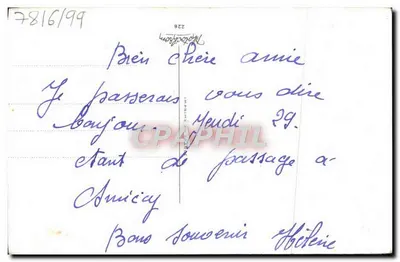 7816/99
226
Bien chère amie
Je passerais vous dire
bonjour. Jeudi 29.
étant de passage à
Annecy
Bons souvenir Hélène
CPAPHIL